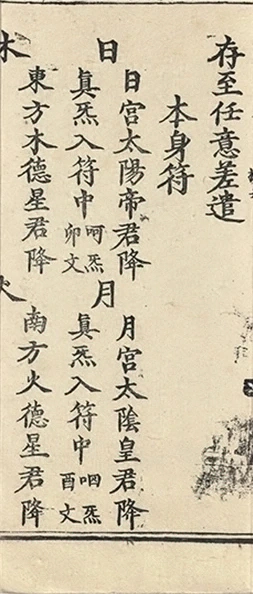 存至任意差遣
本身符
日
日宮太陽帝君降
眞炁入符中
呵炁
卯文
月
月宮太陰皇君降
眞炁入符中
呬炁
酉文
木
東方木德星君降
火
南方火德星君降